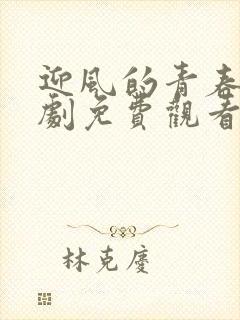 迎風的青春
劇免費觀看
林克慶